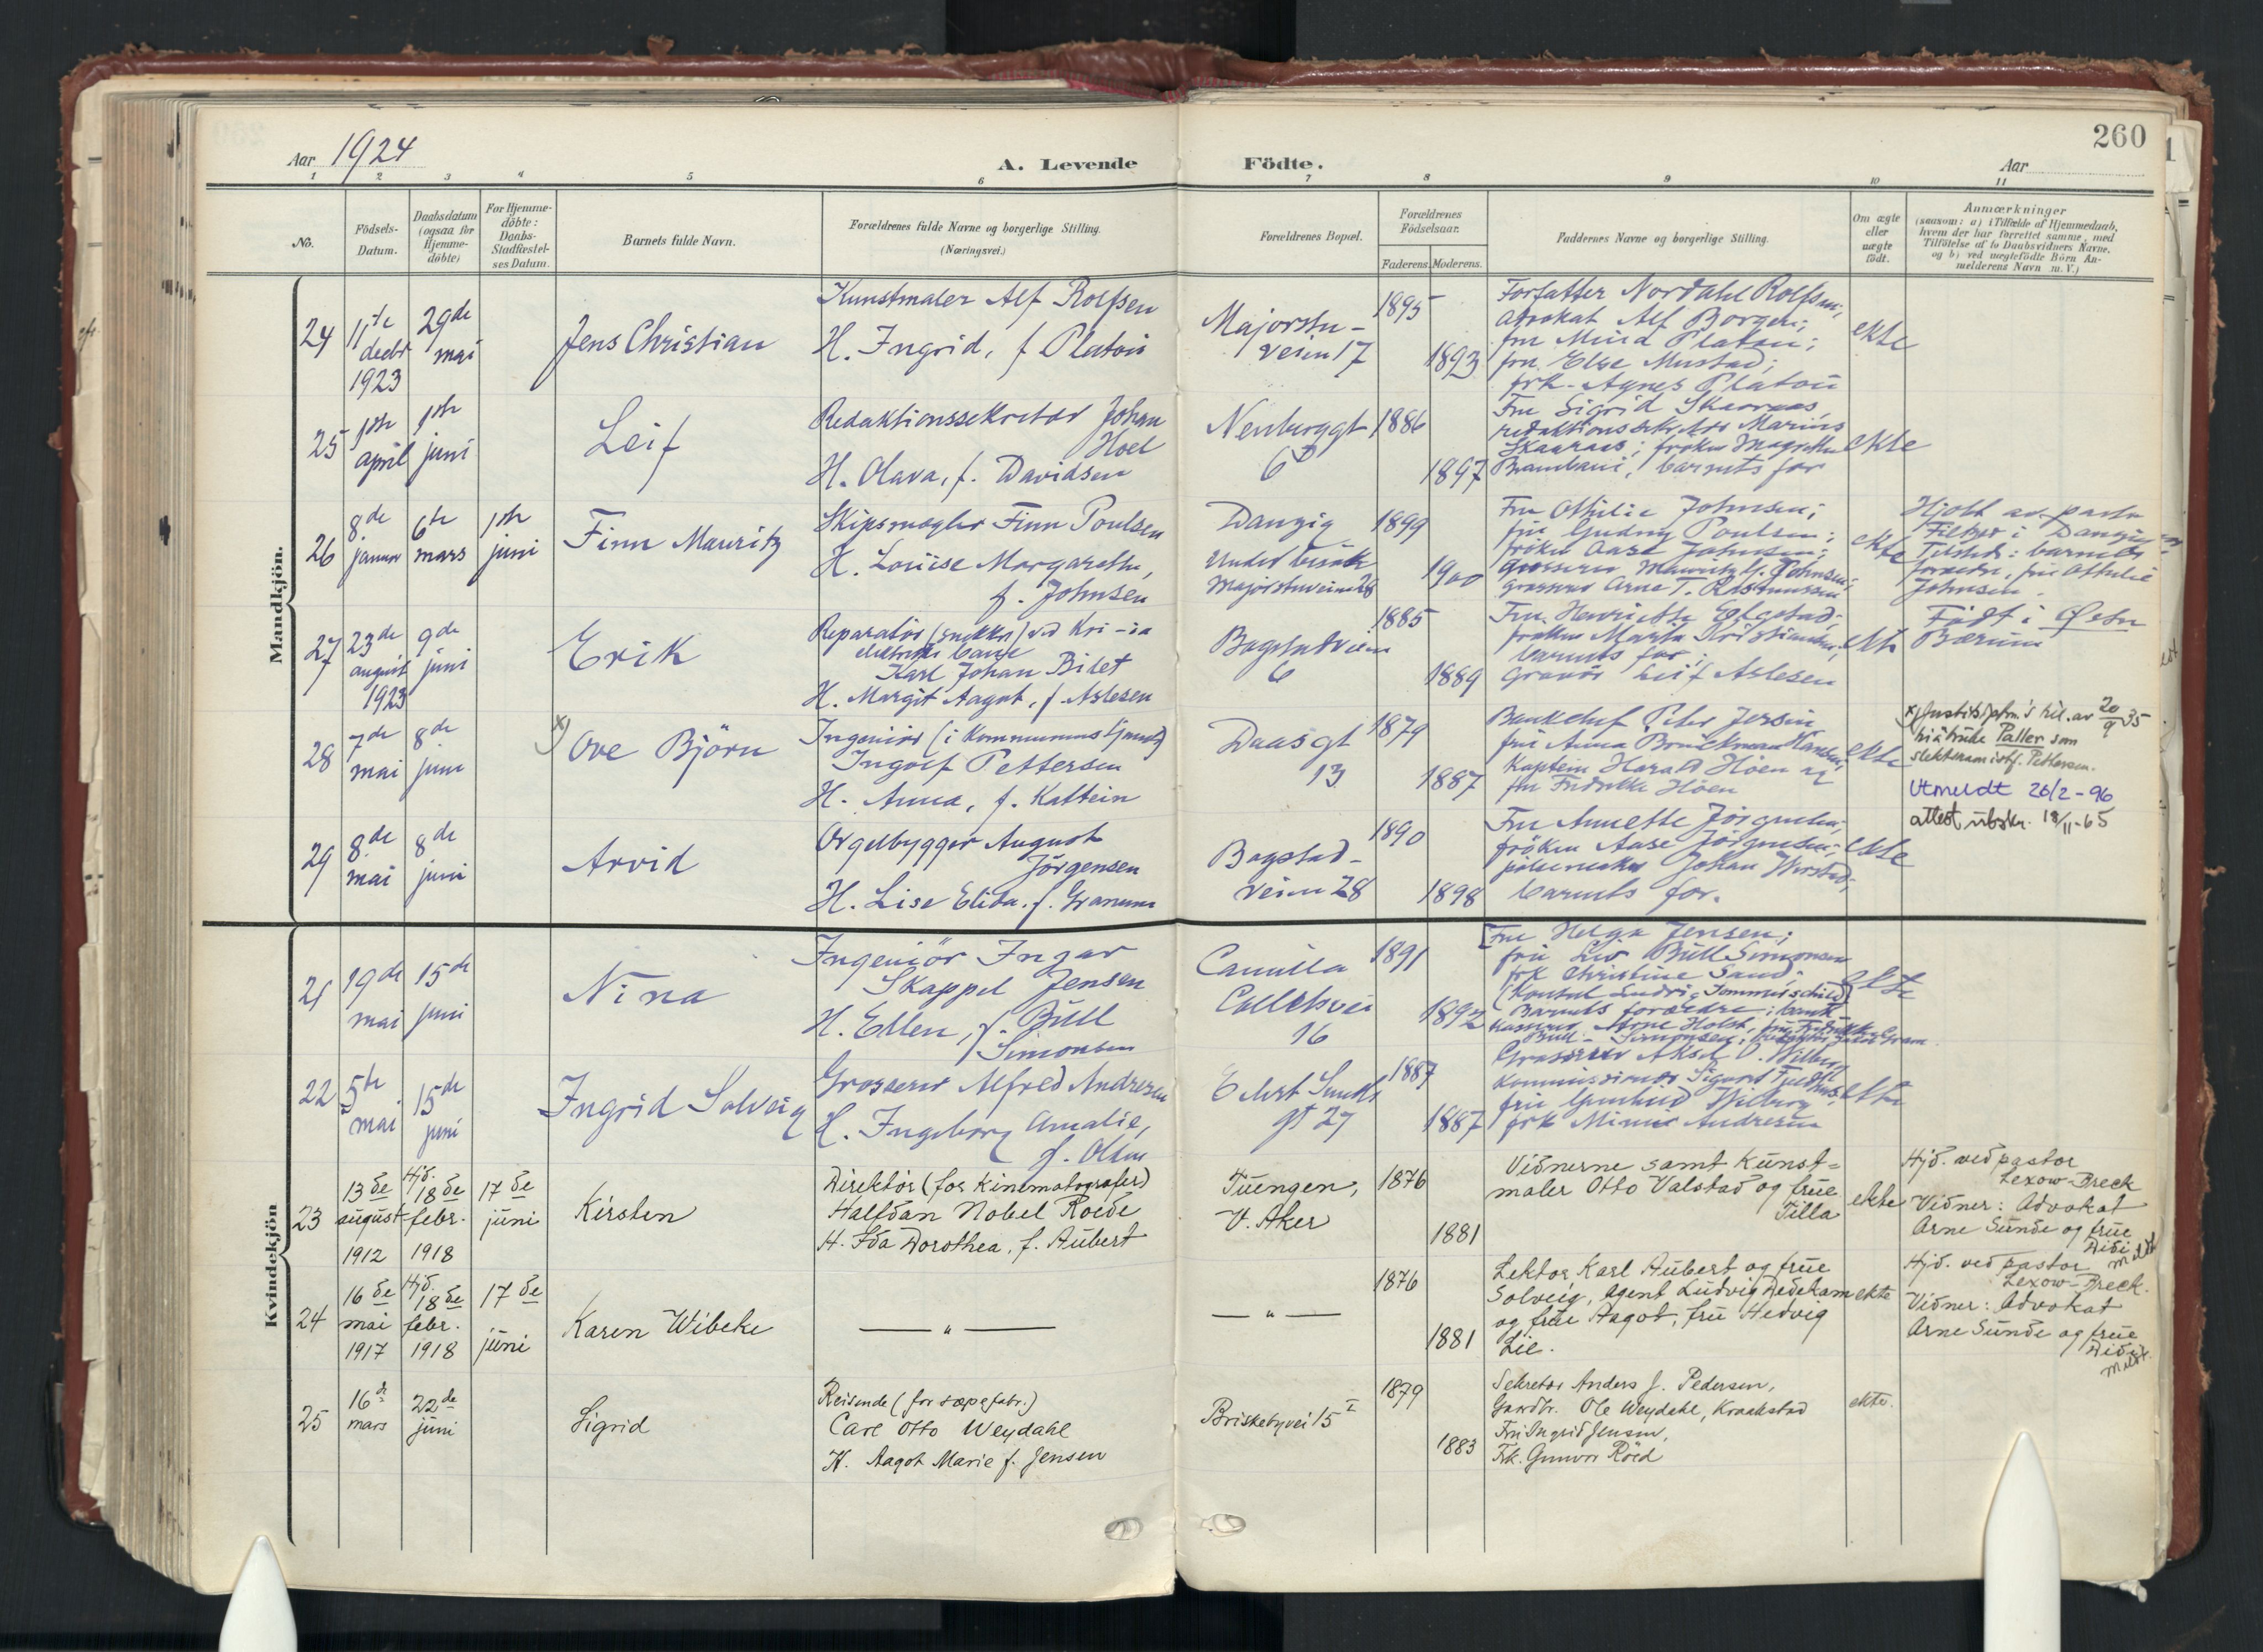 260
Aar 1924
A. Levende Födte.
Aar
1 2 3 4 5 6 7 8 9 10 11
No.
Födsels-Datum.
Daabsdatum (ogsaa for Hjemme-döbte)
For Hjemme-döbte: Daabs-Stadfæstel-ses Datum.
Barnets fulde Navn.
Forældrenes fulde Navne og borgerlige Stilling.
(Næringsvei.)
Forældrenes Bopæl.
Forældrenes Födselsaar.
Faderens. Moderens.
Faddernes Navne og borgerlige Stilling.
Om ægte eller uægte födt.
Anmærkninger
(saasom: a) i Tilfælde af Hjemmedaab, hvem der har forrettet samme, med Tilföielse af to Daabsvidners Navne, og b) ved uægtefödte Börn An-melderens Navn m. V.)
Mandkjön.
24
11te decbr 1923
29de mai
Jens Christian
Kunstmaler Alf Rolfsen
H. Ingrid, f Platou
Majorstu-
veien 17
1895
1893
Forfatter Nordahl Rolfsen;
advokat Alf Borgen;
fru Platou;
fru Else Mustad;
frk. Agnes Platou
ekte
25
1ste april
1ste juni
Leif
Redaktionssekretær Johan
Hoel
H. Olava, f. Davidsen
Neuberggt
6
1886
1897
Fru Sigrid Skaaraas,
Marius
Skaaraas; frøken
barnets far
ekte
26
8de januar
6te mars
1ste juni
Finn Mauritz
Skipsmægler Finn Poulsen
H. Louise Margarethe,
f. Johnsen
Danzig
Under besøk
Majorstuveien 28
1899
1900
Fru Othilie Johnsen;
fru Gudny Poulsen;
frøken Aase Johnsen;
grosserer Mauritz Johnsen;
grosserer Arne T. Rasmussen
ekte
Hjdt av pastor
i Danzig
Tilsted: barnets
forældre, fru Othilie
Johnsen.
27
23de august 1923
9de juni
Erik
Reparatør (snekker) ved Kri-ia
elektriske bane
Karl Johan Bilet
H. Margit Aagot, f Aslesen
Bogstadveien
6
1885
1889
Fru Henriette
frøken Marta Kristiansen,
barnets far;
Gravør Leif Aslesen
ekte
Født i Østre
Bærum
28
7de mai
8de juni
x) Ove Björn
Ingeniör (i Kommunens tjeneste)
Ingolf Pettersen
H. Anna, f. Kattein
Daasgt
13
1879
1887
Bankchef Peter Jersin
fru Anna Hansen,
Kaptein Harald Höen og
fru Fredrikke Höen
ekte
x) Justitsdptm.'s bil. av 20/9 35
til å bruke Paller som
slektsnavn istf. Pettersen.
Utmeldt 26/2-96
attest utskr. 18/11-65
29
8de mai
8de juni
Arvid
Orgelbygger August
Jörgensen
H. Lise Elida, f. Granum
Bogstad-
veien 28
1890
1898
Fru Annette Jörgensen;
fröken Aase Jörgensen;
Johan
barnets far.
ekte
Kvindekjön
21
19de mai
15de juni
Nina
Ingeniör Ingar
Skappel Jensen
H. Ellen, f. Bull
Simonsen
Camilla
Colletsvei
16
1891
1892
Fru Helga Jensen;
fru Liv Bull Simonsen
frk Christine Sand;
(Konsul Sommerschild)
Barnets forældre; bank-
kasserer Arne Holst, fru Fredrikke
Bull-Simonsen; Gram
ekte
22
5te mai
15de juni
Ingrid Solveig
Grosserer Alfred Andresen
H. Ingeborg Amalie,
f. Olsen
Eilert Sundts
gt 27
1887
1887
Grosserer Aksel O. Wilberg
Kommissionær Sigurd
fru Gunhild Wilberg
frk Minnie Andresen
ekte
23
13de august 1912
Hjd. 18de febr. 1918
17de juni
Kirsten
Direktör (for kinematografer)
Halfdan Nobel Roede
H. Ida Dorothea, f. Aubert
Tuengen,
V. Aker
1876
1881
Vidnerne samt Kunst-
maler Otto Valstad og frue
Tilla
ekte
Hjd. ved pastor
Lexow-Breck
Vidner: Advokat
Arne Sunde og frue
Didi
24
16de mai 1917
Hjd. 18de febr. 1918
17de juni
Karen Wibeke
— " —
— " —
1876
1881
Lektor Karl Aubert og frue
Solveig, Agent Ludvig Dedekam
og frue Aagot, fru Hedvig
Lie.
ekte
Hjd. ved pastor
Lexow-Breck.
Vidner: Advokat
Arne Sunde og frue
Didi
25
16de mars
22de juni
Sigrid
Reisende (for sæpefabr.)
Carl Otto Weydahl
H. Aagot Marie f. Jensen
Briskebyvei 15 I
1879
1883
Sekretær Anders J. Pedersen,
Gaardbr. Ole Weydahl, Kraakstad
Fru Ingrid Jensen,
Frk. Gunvor Röed
ekte.